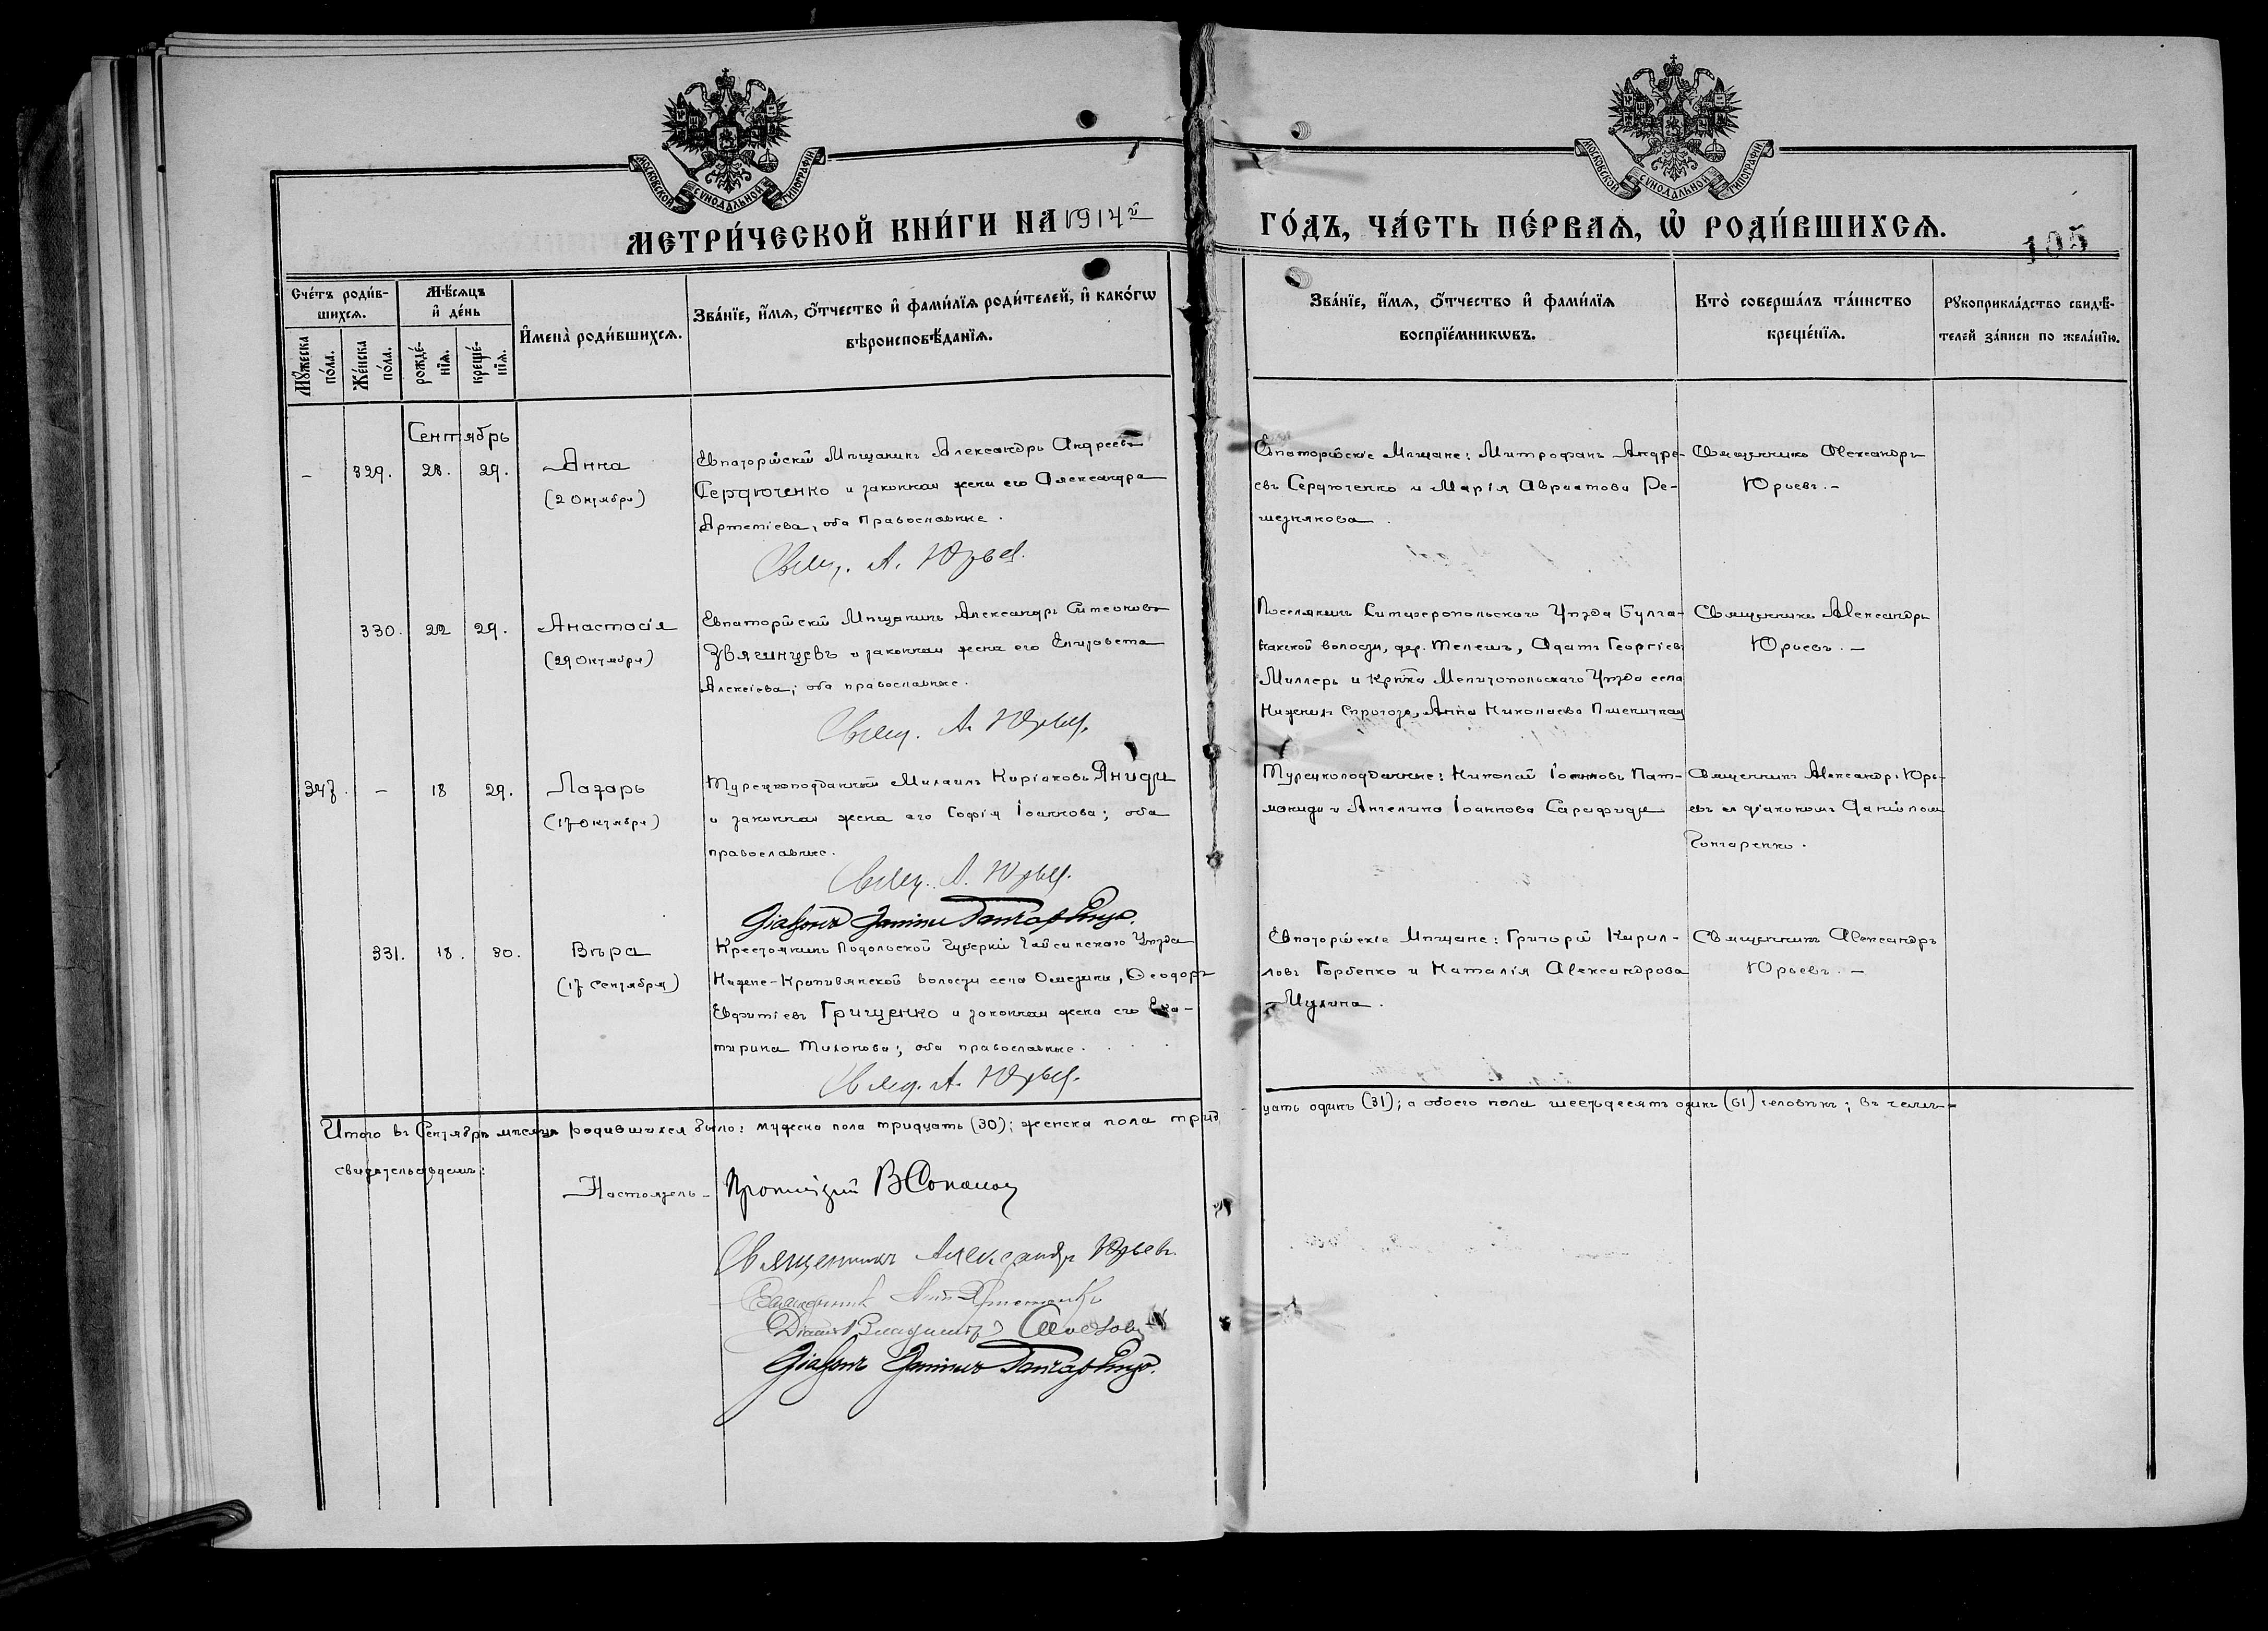 МОСКОВСКОЙ СѴНОДАЛЬНОЙ ТИПОГРАФІИ
МОСКОВСКОЙ СѴНОДАЛЬНОЙ ТИПОГРАФІИ
МЕТРИ́ЧЕСКОЙ КНИ́ГИ НА 1914й
ГО́ДЪ, ЧА́СТЬ ПЕ́РВАѦ, Ѡ҆ РОДИ́ВШИХСѦ.
105
Сче́тъ роди́в-
шихсѧ.
Мѣ́сѧцъ
и҆ де́нь
Мꙋ́жеска
по́ла.
Же́нска
по́ла.
рожде́-
нїѧ.
креще́-
нїѧ.
И҆мена̀ роди́вшихсѧ.
Зва́нїе, и҆́мѧ, ѻ҆́тчество и҆ фами́лїѧ роди́телей, и҆ како́гѡ
вѣроисповѣ́данїѧ.
Зва́нїе, и҆́мѧ, ѻ҆́тчество и҆ фами́лїѧ
воспрїе́мникѡвъ.
Кто̀ соверша́лъ та́инство
креще́нїѧ.
Рꙋкоприкла́дство свидѣ́-
телей за́писи по жела́нїю.
Сентябрь
- 329. 28. 29.
Анна
(2 Октября)
Евпаторійскій Мѣщанинъ Александръ Андреевъ
Сердюченко и законная жена его Александра
Артеміева, оба Православные.
Свящ. А. Юрьев.
Евпаторійскіе Мѣщане: Митрофанъ Андре-
евъ Сердюченко и Марія Ре-
шетнякова.
Священникъ Александръ
Юрьевъ.-
330. 22 29.
Анастасія
(29 Октября)
Евпаторійскій Мѣщанинъ Александръ Симеоновъ
Звягинцевъ и законная жена его Елизавета
Алексіева; оба православные.
Свящ. А. Юрьев.
Поселянинъ Симферопольскаго Уѣзда Булга-
накской волости, дер. Телешъ, Адамъ Георгіевъ
Миллеръ и Кр҃нка Мелитопольскаго Уѣзда села
Нижнихъ Сѣрогозъ, Анна Николаева Пшеничная
Священникъ Александръ
Юрьевъ.-
347. - 18 29.
Лазарь
(17 Октября)
Турецкоподданный Михаилъ Киріаковъ Яниди
и законная жена его Софія Іоаннова; оба
православные.
Свящ. А. Юрьев.
Турецкоподданные: Николай Іоанновъ Пат-
макиди и Ангелина Іоаннова Сарафиди
Священникъ Александръ Юрь-
евъ съ діакономъ Даніиломъ
Гончаренко.
331. 18. 30.
Вѣра
(17 Сентября)
Крестьянинъ Подольской Губерніи Гайсинскаго Уѣзда
Нижне-Кропивянской волости села Феодоръ
Евфиміевъ Грищенко и законная жена его Ека-
терина Тихонова; оба православные.
Свящ. А. Юрьев.
Евпаторійскіе Мѣщане: Григорій Кирил-
ловъ Горбенко и Наталія Александрова
Мухина.
Священникъ Александръ
Юрьевъ.-
Итого въ Сентябрѣ мѣсяцѣ родившихся было: мужеска пола тридцать (30); женска пола трид-
цать одинъ (31); а обоего пола шестьдесятъ одинъ (61) человѣкъ; въ чемъ
свидѣтельствуемъ:
Настоятель-
Священникъ Александръ Юрьевъ.